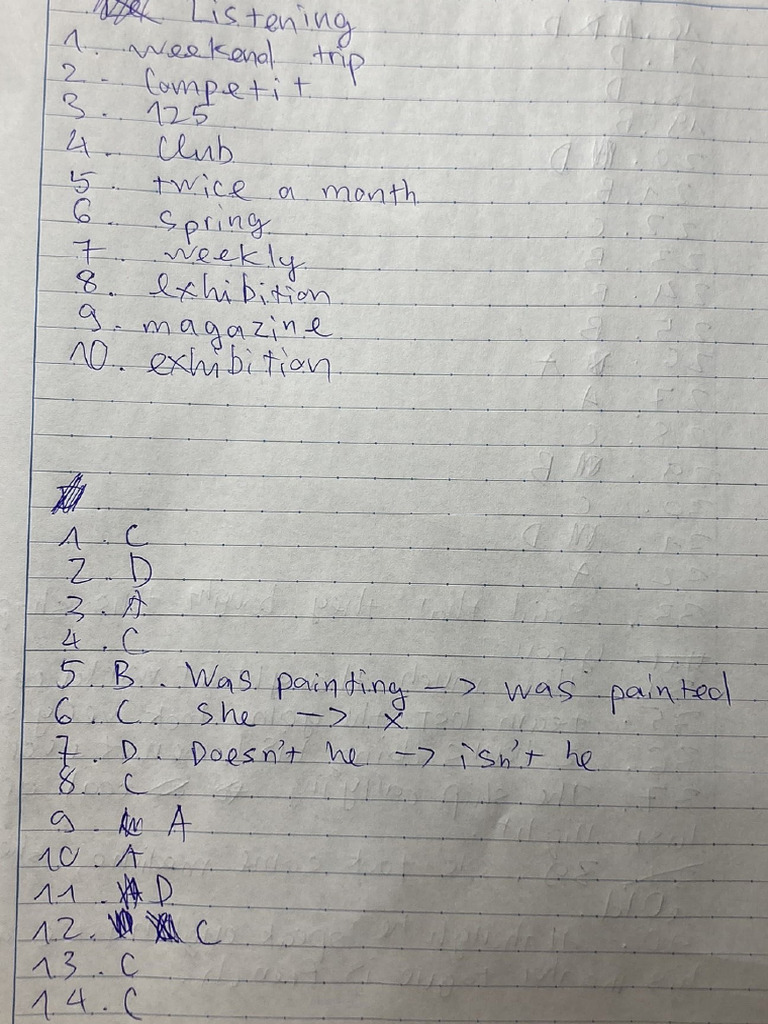 Listening
1. weekend trip
2. Competit
3. 125
4. Club
5. twice a month
6. spring
7. weekly
8. exhibition
9. magazine
10. exhibition
1. C
2. D
3. A
4. C
5. B. Was painting -> was painted
6. C. She -> x
7. D. Doesn't he -> isn't he
8. C
9. A
10. A
11. D
12. C
13. C
14. C